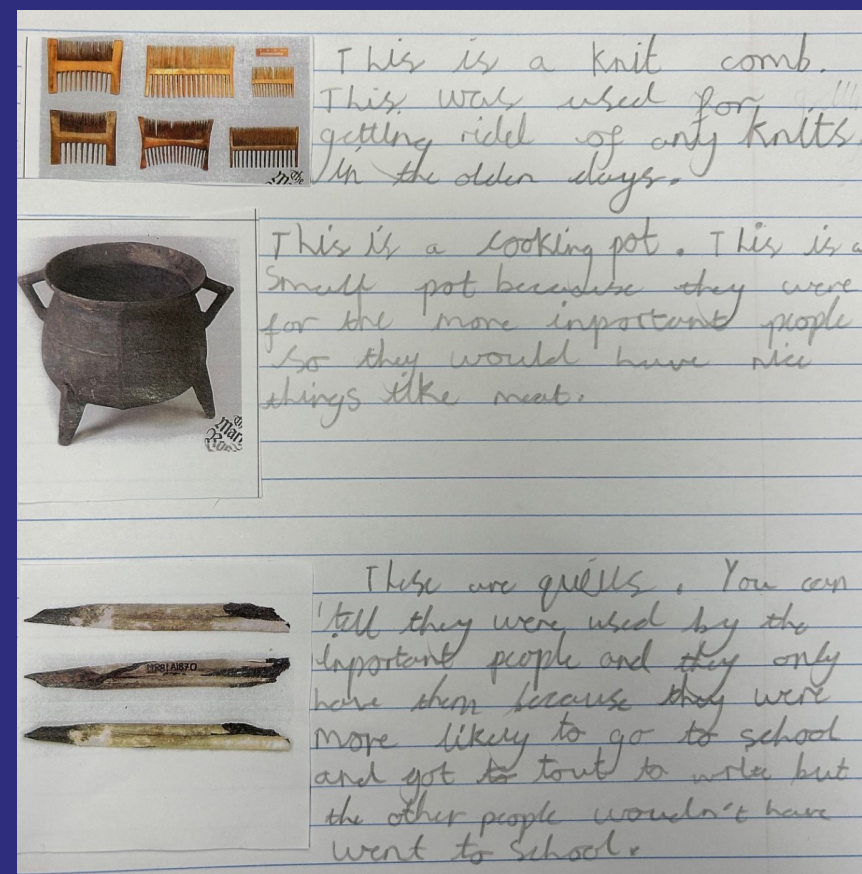 This is a knit comb.
This was used for
getting ridd of any knits
in the olden days.
This is a cooking pot. This is a
small pot because they were
for the more inportant people
so they would have nice
things like meat.
These are quills. You can
tell they were used by the
inportant people and they only
have them because they were
MR81A1870
more likely to go to school
and got to tout to write but
the other people wouldn't have
went to school.